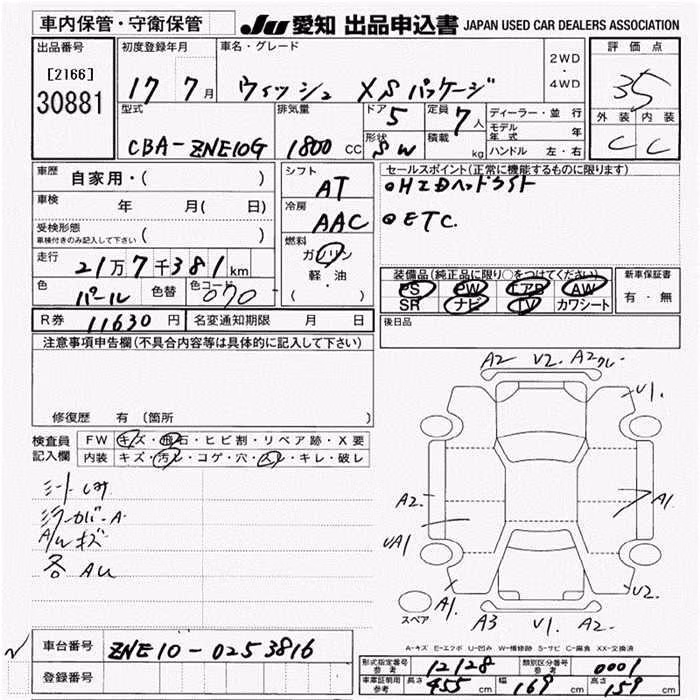 車内保管・守衛保管 JU 愛知 出品申込書 JAPAN USED CAR DEALERS ASSOCIATION
出品番号 初度登録年月 車名・グレード 2WD ・ 4WD 評価点
[2166] 30881 17 7月 ウィッシュ XSパッケージ 35
型式 排気量 ドア 5 定員 7人 ディーラー・並行 外装 内装
CBA-ZNE10G 1800 CC 形状 SW 積載 kg モデル年式 年 C C
ハンドル 左・右
車歴 自家用・( ) シフト AT セールスポイント(正常に機能するものに限ります)
車検 年 月( 日) 冷房 AAC ●HIDヘッドライト
受検形態 車検付きのみ記入して下さい ( ) ●ETC.
走行 21万7千381km 燃料 ガソリン 軽・油 ( )
色 パール 色替 色コード 070
装備品(純正品に限り○をつけてください) 新車保証書
PS PW エアB AW 有・無
SR ナビ TV カワシート
R券 11630円 名変通知期限 月 日 後日品
注意事項申告欄(不具合内容等は具体的に記入して下さい)
修復歴 有 (箇所 )
A2 V2. A2
V1.
検査員 記入欄 FW キズ・飛石・ヒビ割・リペア跡・X要
内装 キズ・汚レ・コゲ・穴・スレ・キレ・破レ
シートしみ
ミラーカバーA
A/Wキズ
各AU
A2. A1
UA1
A1. V2.
スペア A3 V1. A2.
A-キズ E-エクボ U-凹み W-補修跡 S-サビ C-腐食 XX-交換済
車台番号 ZNE10-0253816
登録番号
形式指定番号 参考 12128 類別区分番号 参考 0001
車庫証明用 参考 長さ 455 cm 幅 169 cm 高さ 159 cm